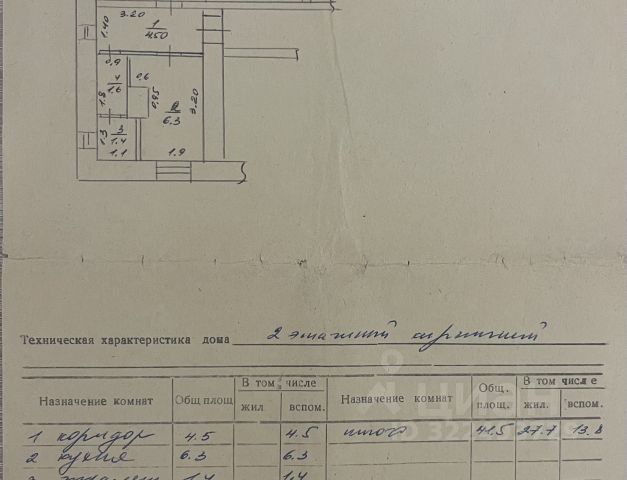 3.20
1
4.50
1.40
0,9
4
1.6
0,6
1.8
0,95
2
6.3
3.20
3
1.4
1.3
1.1
1.9
Техническая характеристика дома 2 этажный кирпичный
Назначение комнат Общ площ В том числе жил вспом. Назначение комнат Общ. площ. В том числе жил. вспом.
1 коридор 4.5 4.5 итого 41.5 27.7 13.8
2 кухня 6.3 6.3
3 туалет 1.4 1.4
циан